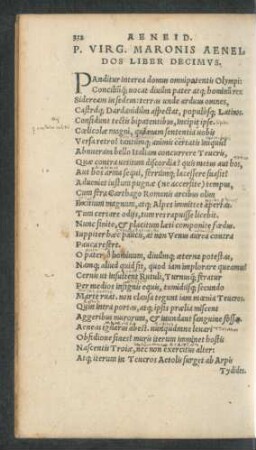 312 AENEID.
P. VIRG. MARONIS AENEI
DOS LIBER DECIMVS.
PAnditur interea domus omnipotentis Olympi:
Conciliūq; uocat diuûm pater atq; hominū rex
Sideream in sedem: terras unde arduus omnes,
Castraq; Dardanidûm aspectat, populosq; Latinos.
Considunt tectis bipatentibus, incipit ipse.
Coelicolae magni, quianam sententia uobis
Versa retro? tantumq; animis certatis iniquis?
Abnueram bello Italiam concurrere Teucris,
Quae contra uetitum discordia? quis metus aut hos,
Aut hos arma sequi, ferrumq; lacessere suasit?
Adueniet iustum pugnae (ne accersite) tempus,
Cum fera Carthago Romanis arcibus olim
Exitium magnum, atq; Alpes immittet apertas.
Tum certare odijs, tum res rapuisse licebit.
Nunc sinite, & placitum laeti componite foedus.
Iuppiter haec paucis, at non Venus aurea contra
Pauca refert.
O pater, ô hominum, diuûmq; aeterna potestas,
Namq; aliud quid sit, quod iam implorare queamus?
Cernis ut insultent Rutuli, Turnusq; feratur
Per medios insignis equis, tumidusq; secundo
Marte ruat. non clausa tegunt iam moenia Teucros.
Quin intra portas, atq; ipsis praelia miscent
Aggeribus murorum, & inundant sanguine fossae.
Aeneas ignarus abest. nunquamne leuari
Obsidione sines? muris iterum imminet hostis
Nascentis Troiae, nec non exercitus alter:
Atq; iterum in Teucros Aetolis surget ab Arpis
Tydides.